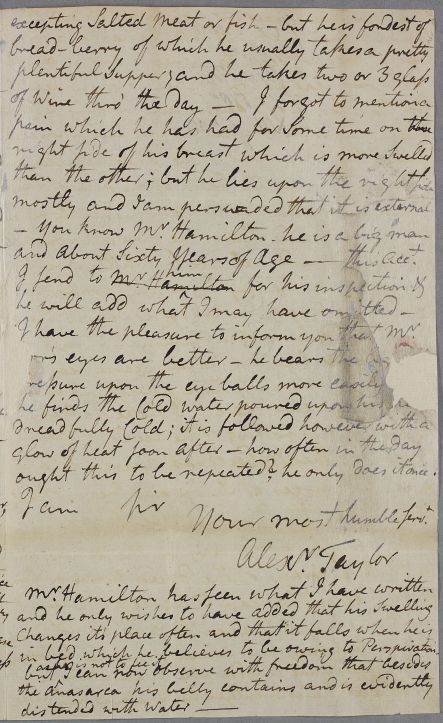 excepting Salted meat or fish - but he is fondest of
bread-berry of which he usually takes a pretty
plentiful Supper; and he takes two or 3 glass
of Wine thro' the day - I forgot to mention a
pain which he has had for Some time on
right side of his breast which is more Swelled
than the other; but he lies upon the right side
mostly and I am perswaded that it is external
- You know Mr. Hamilton. he is a big man
and about Sixty Years of Age - this Acct.
I send to Mr. Hamilton him for his inspection &
he will add what I may have omitted -
I have the pleasure to inform you that Mr
eyes are better - he bears the
pressure upon the eye balls more easily
he finds the Cold water poured upon his
dreadfully Cold; it is followed however with a
glow of heat soon after - how often in the day
ought this to be repeated? he only does it once.
I am Sir
Your most humble Servt.
Alexr. Taylor
Mr. Hamilton has seen what I have written
and he only wishes to have added that his Swelling
Changes its place often and that it falls when he is
in bed which he believes to be owing to Perspiration
but I can now observe with freedom that besides
the Anasarca his belly contains and is evidently
distended with Water -